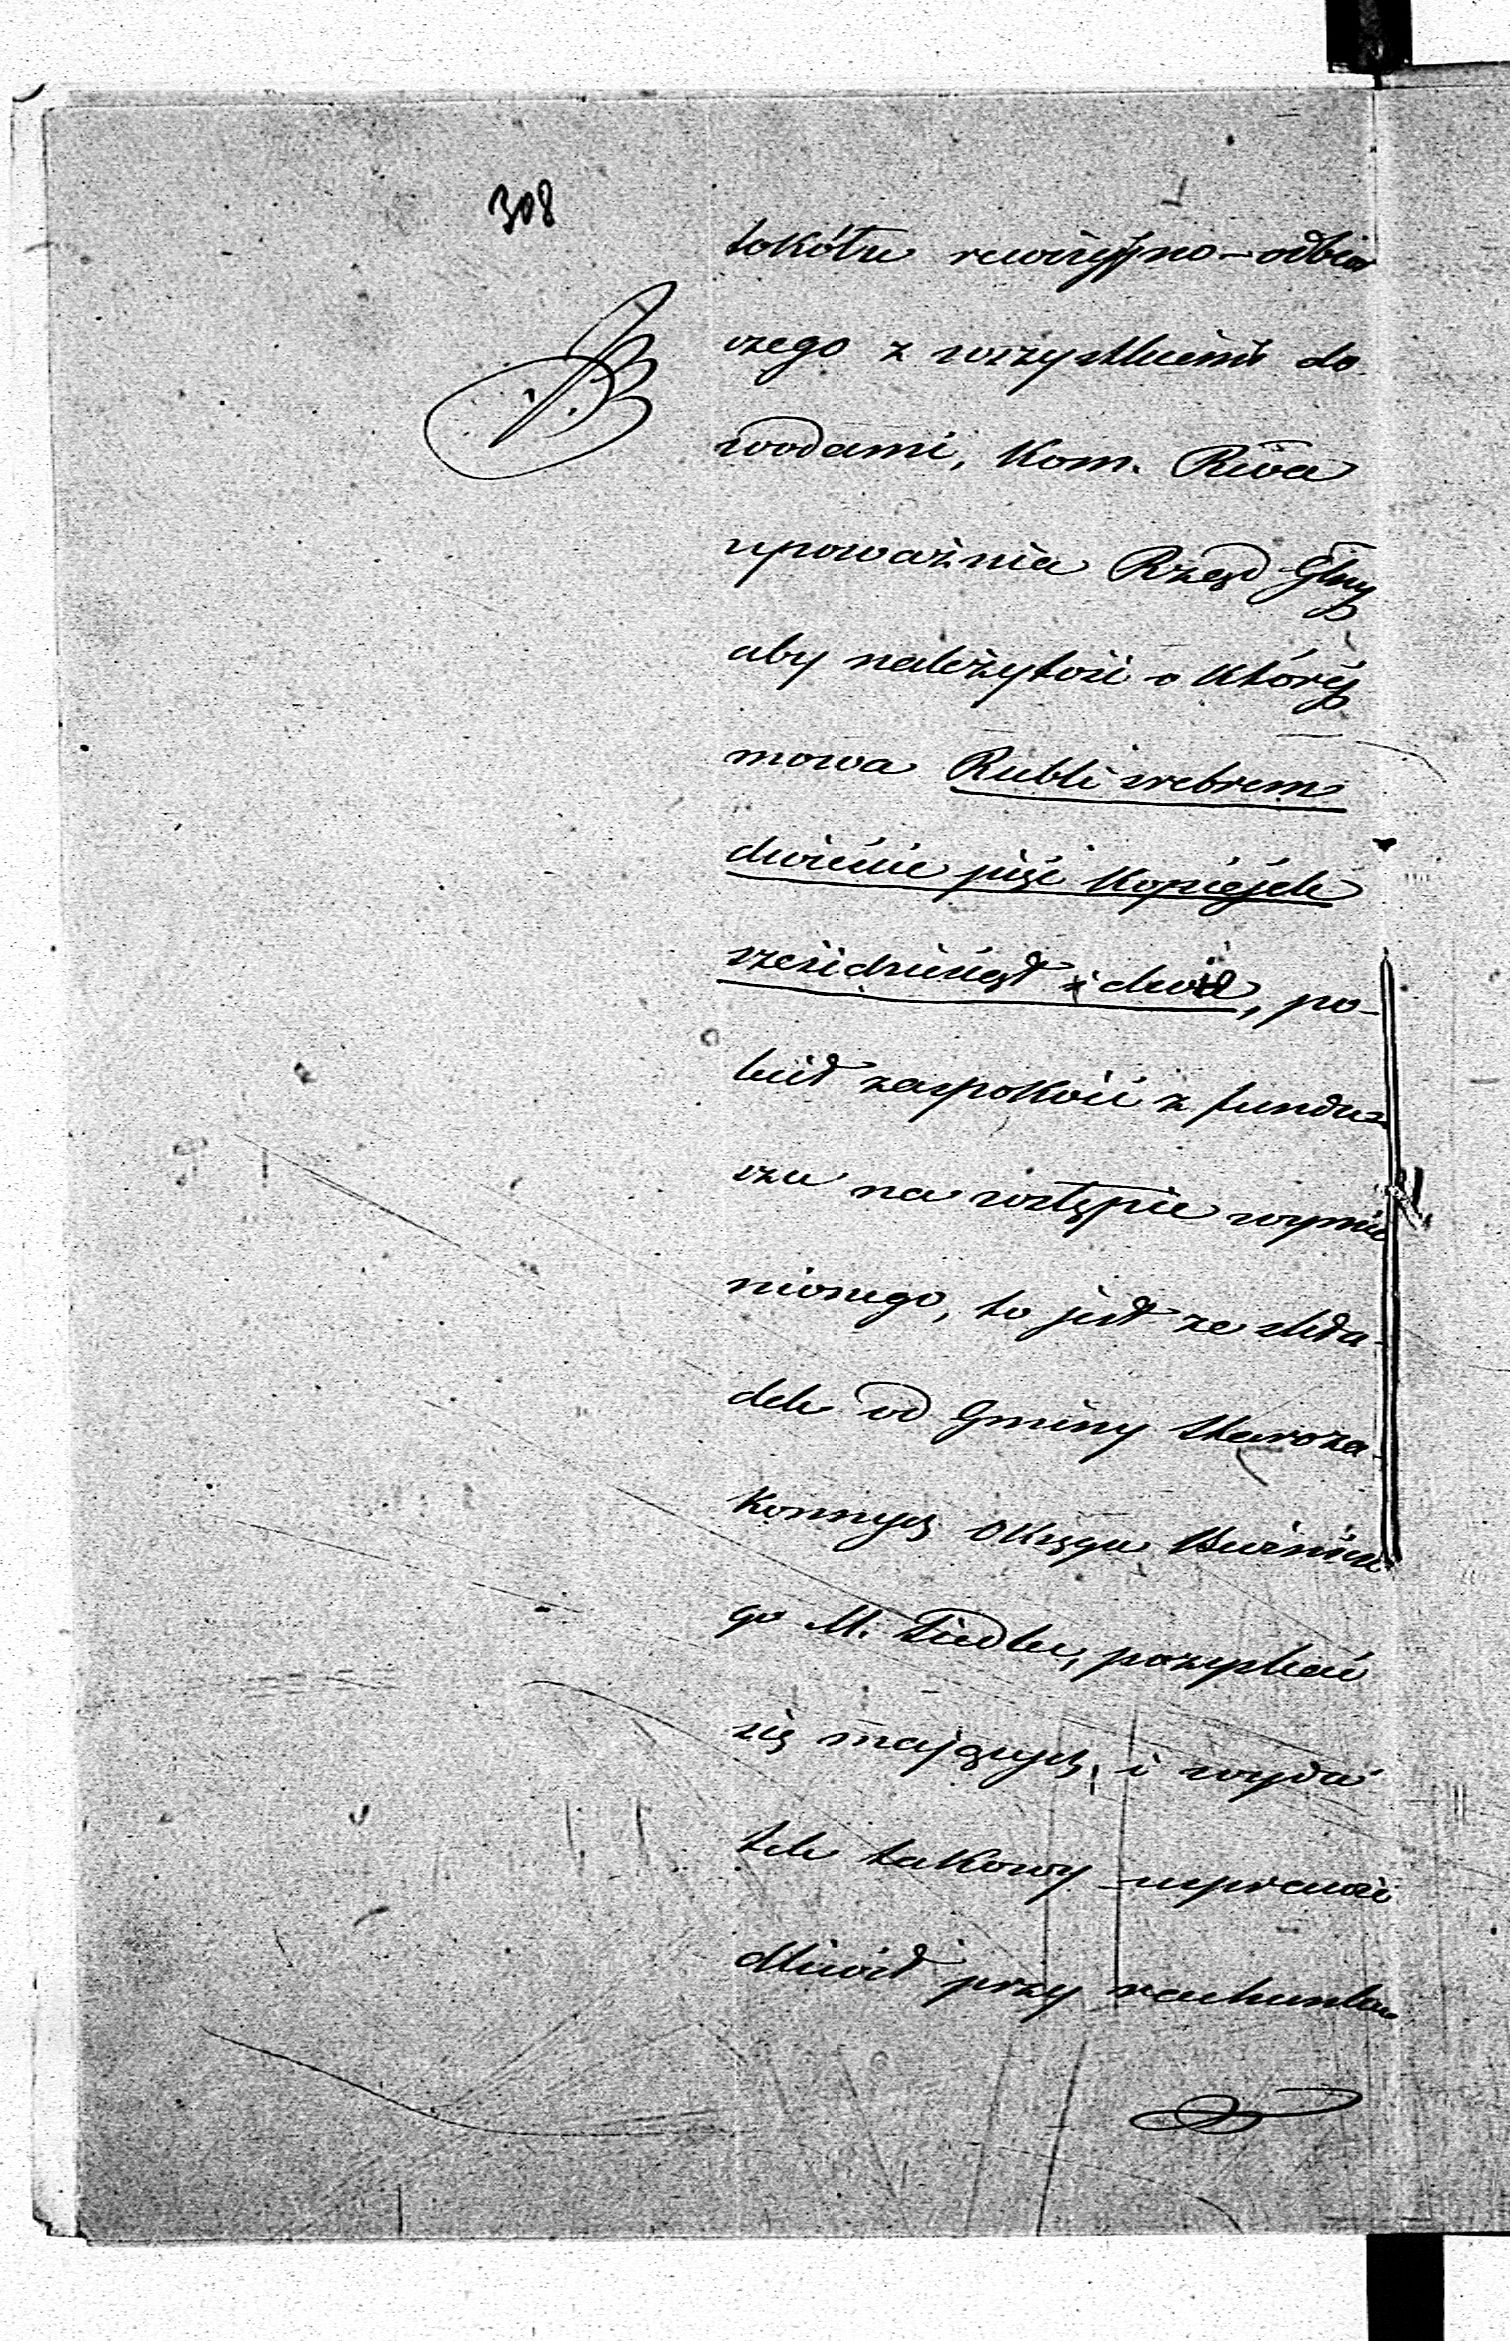 308
tokółu rewizyjno-odbior
czego z wszystkiemi do
wodami, Kom. Rwa
upoważnia Rząd Glny
aby należytość o któréj
mowa Rubli srebrem
dwieście pięć Kopiéjek
sześćdziesiąt i dwie, po-
lecił zaspokoić z fundu-
szu na wstępie wymie
nionego, to jest ze skła-
dek od Gminy Staroza-
konnych Okręgu Bużnicze
go M. Siedlec, pozyskać
się mających, i wyda
tek takowy usprawie
dliwił przy rachunku